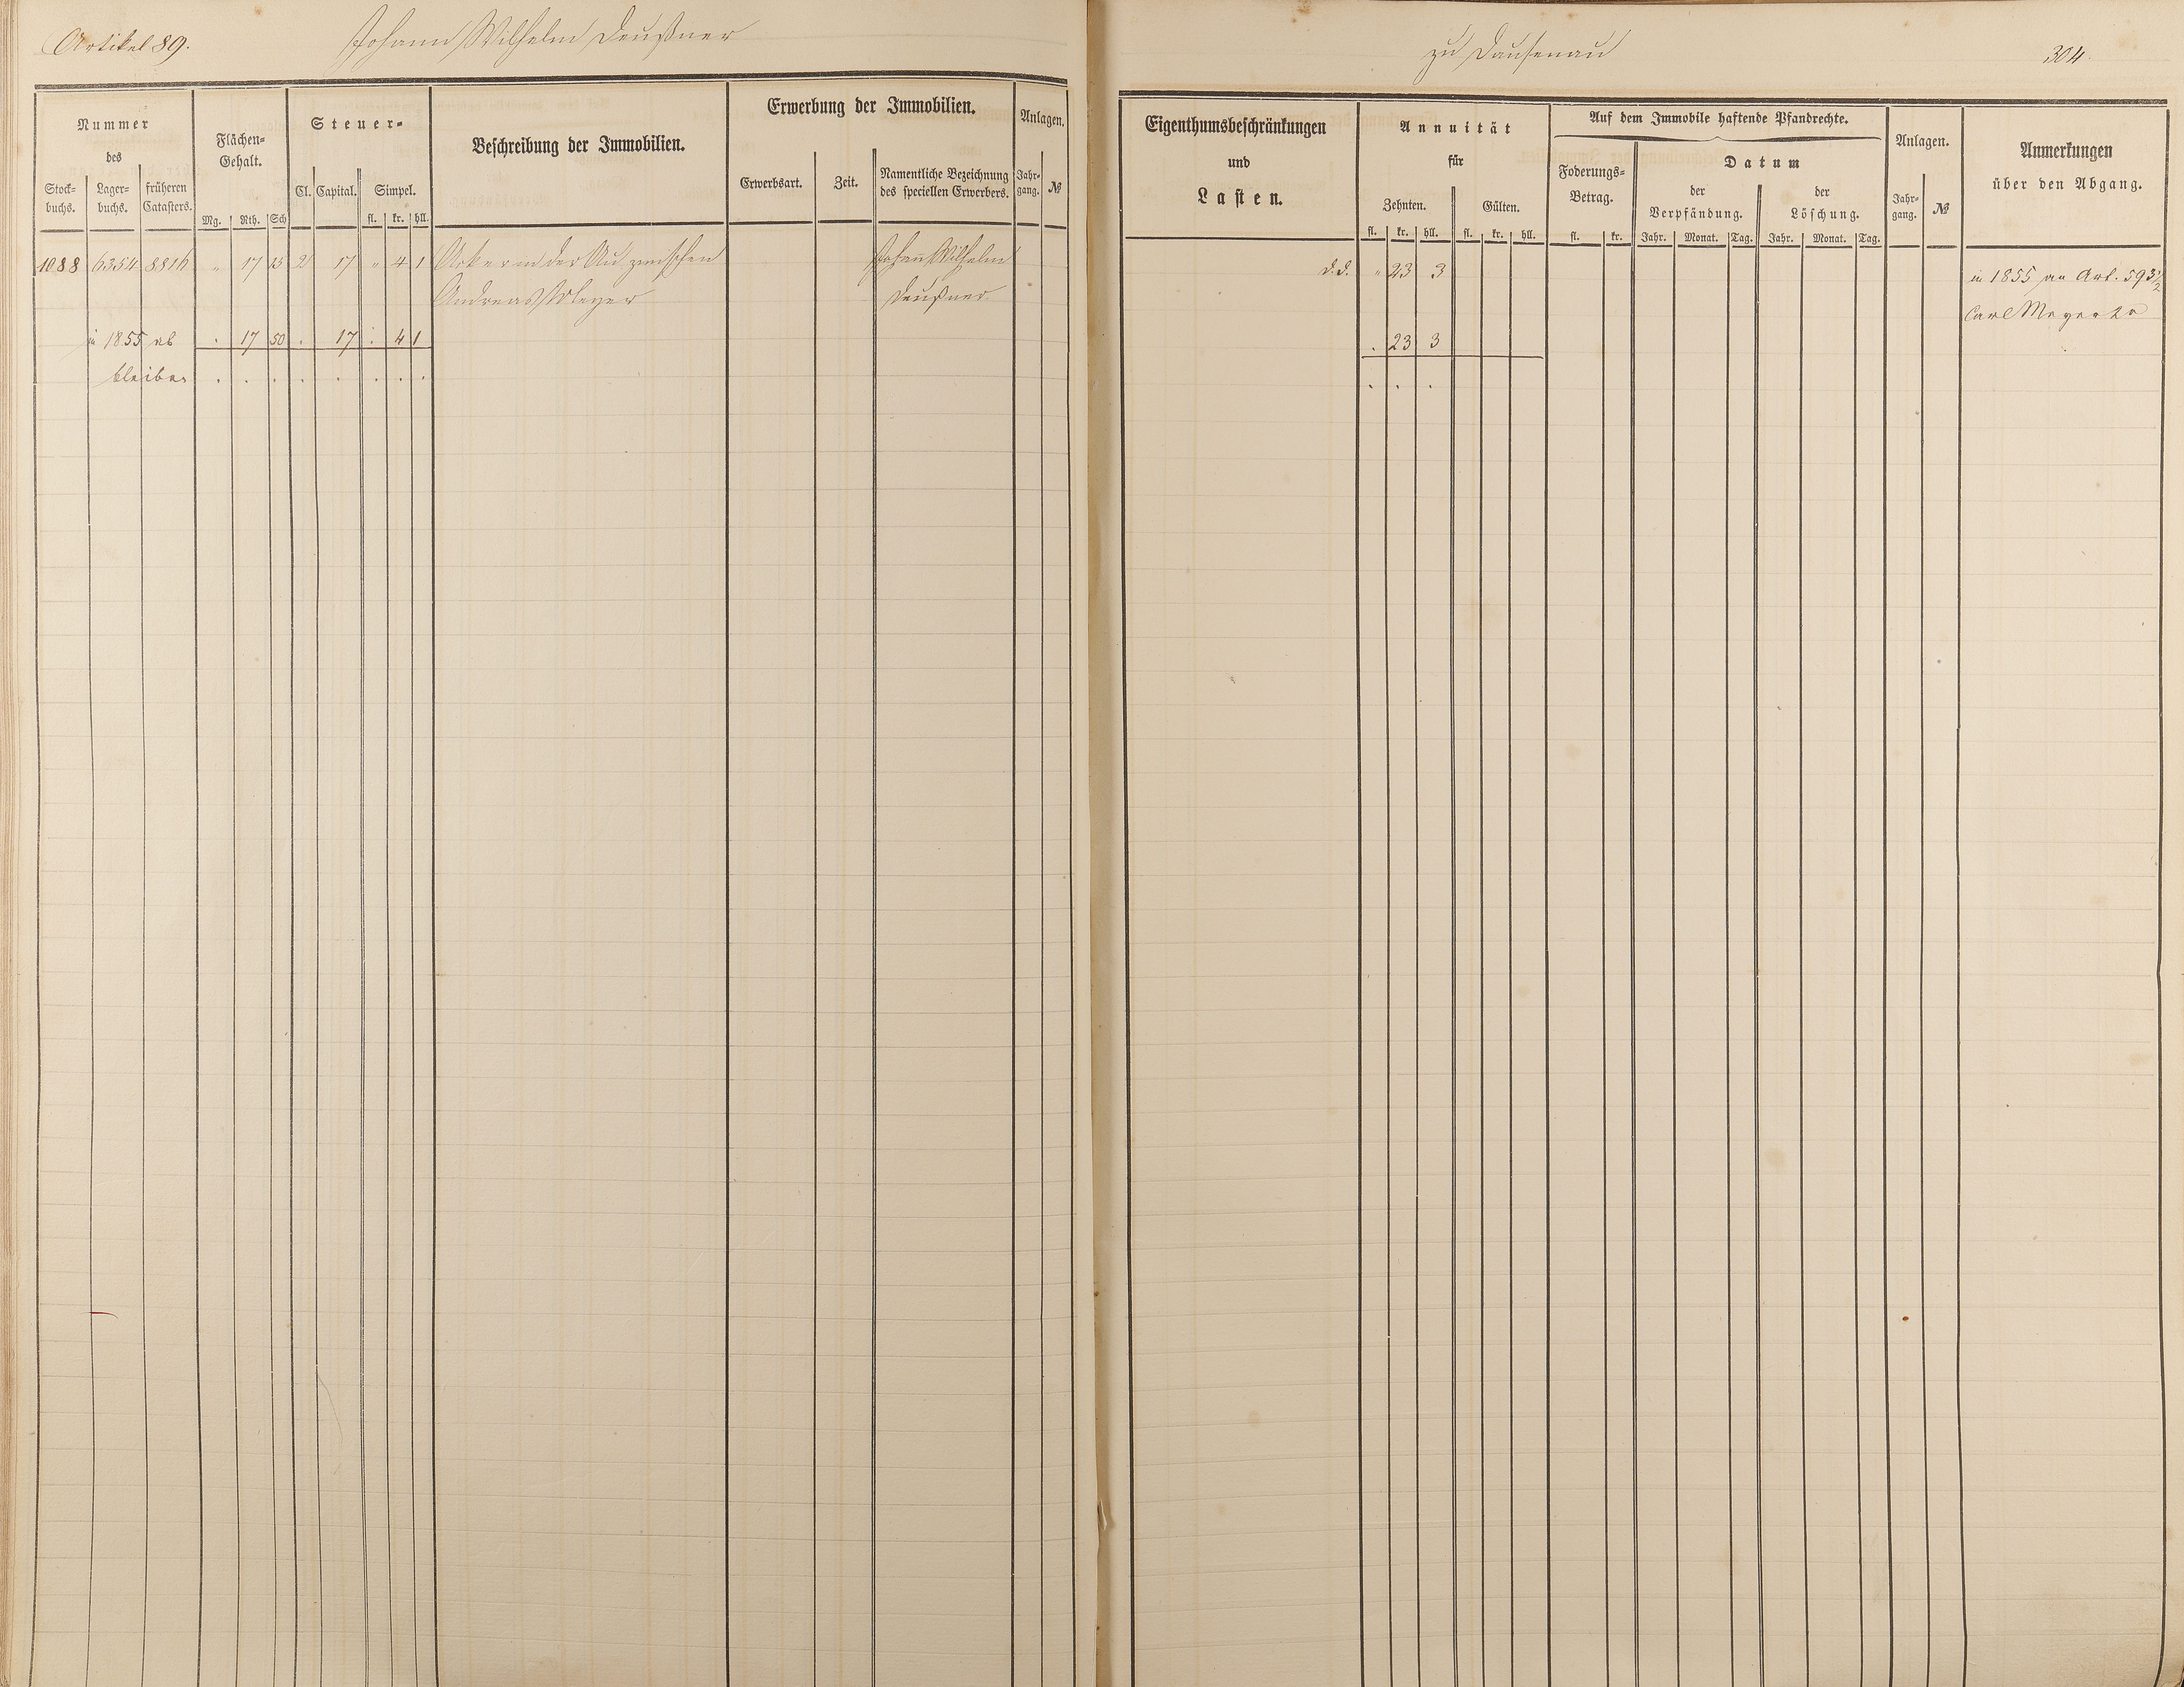 Artikel 89. Johann Wilhelm Deußner
Nummer
des
Stock-
buchs.
Lager-
buchs.
früheren
Catasters.
Flächen-
Gehalt.
Mg. Rth. Sch
Steuer-
Cl. Capital. Simpel.
fl. kr. hll.
Beschreibung der Immobilien.
Erwerbung der Immobilien.
Erwerbsart. Zeit.
Namentliche Bezeichnung
des speciellen Erwerbers.
Anlagen.
Jahr-
gang. №
1088 6354 8816 " 17 2 17 " 4 1 Acker in der Au zwischen Johann Wilhelm
Andreas Deußner
in 1855 ab . 17 50 . 17 . 4 1
bleiben . . . . . . . .
zu Dausenau 304
Eigenthumsbeschränkungen
und
Lasten.
Annuität
für
Zehnten. Gülten.
fl. kr. hll. fl. kr. hll.
Auf dem Immobile haftende Pfandrechte.
Foderungs-
Betrag.
fl. kr.
Datum
der
Verpfändung.
der
Löschung.
Jahr. Monat. Tag. Jahr. Monat. Tag.
Anlagen.
Jahr-
gang. №
Anmerkungen
über den Abgang.
d.d. " 23 3 in 1855 an Art. 593 1/2
Carl Meyer
. 23 3
. . .